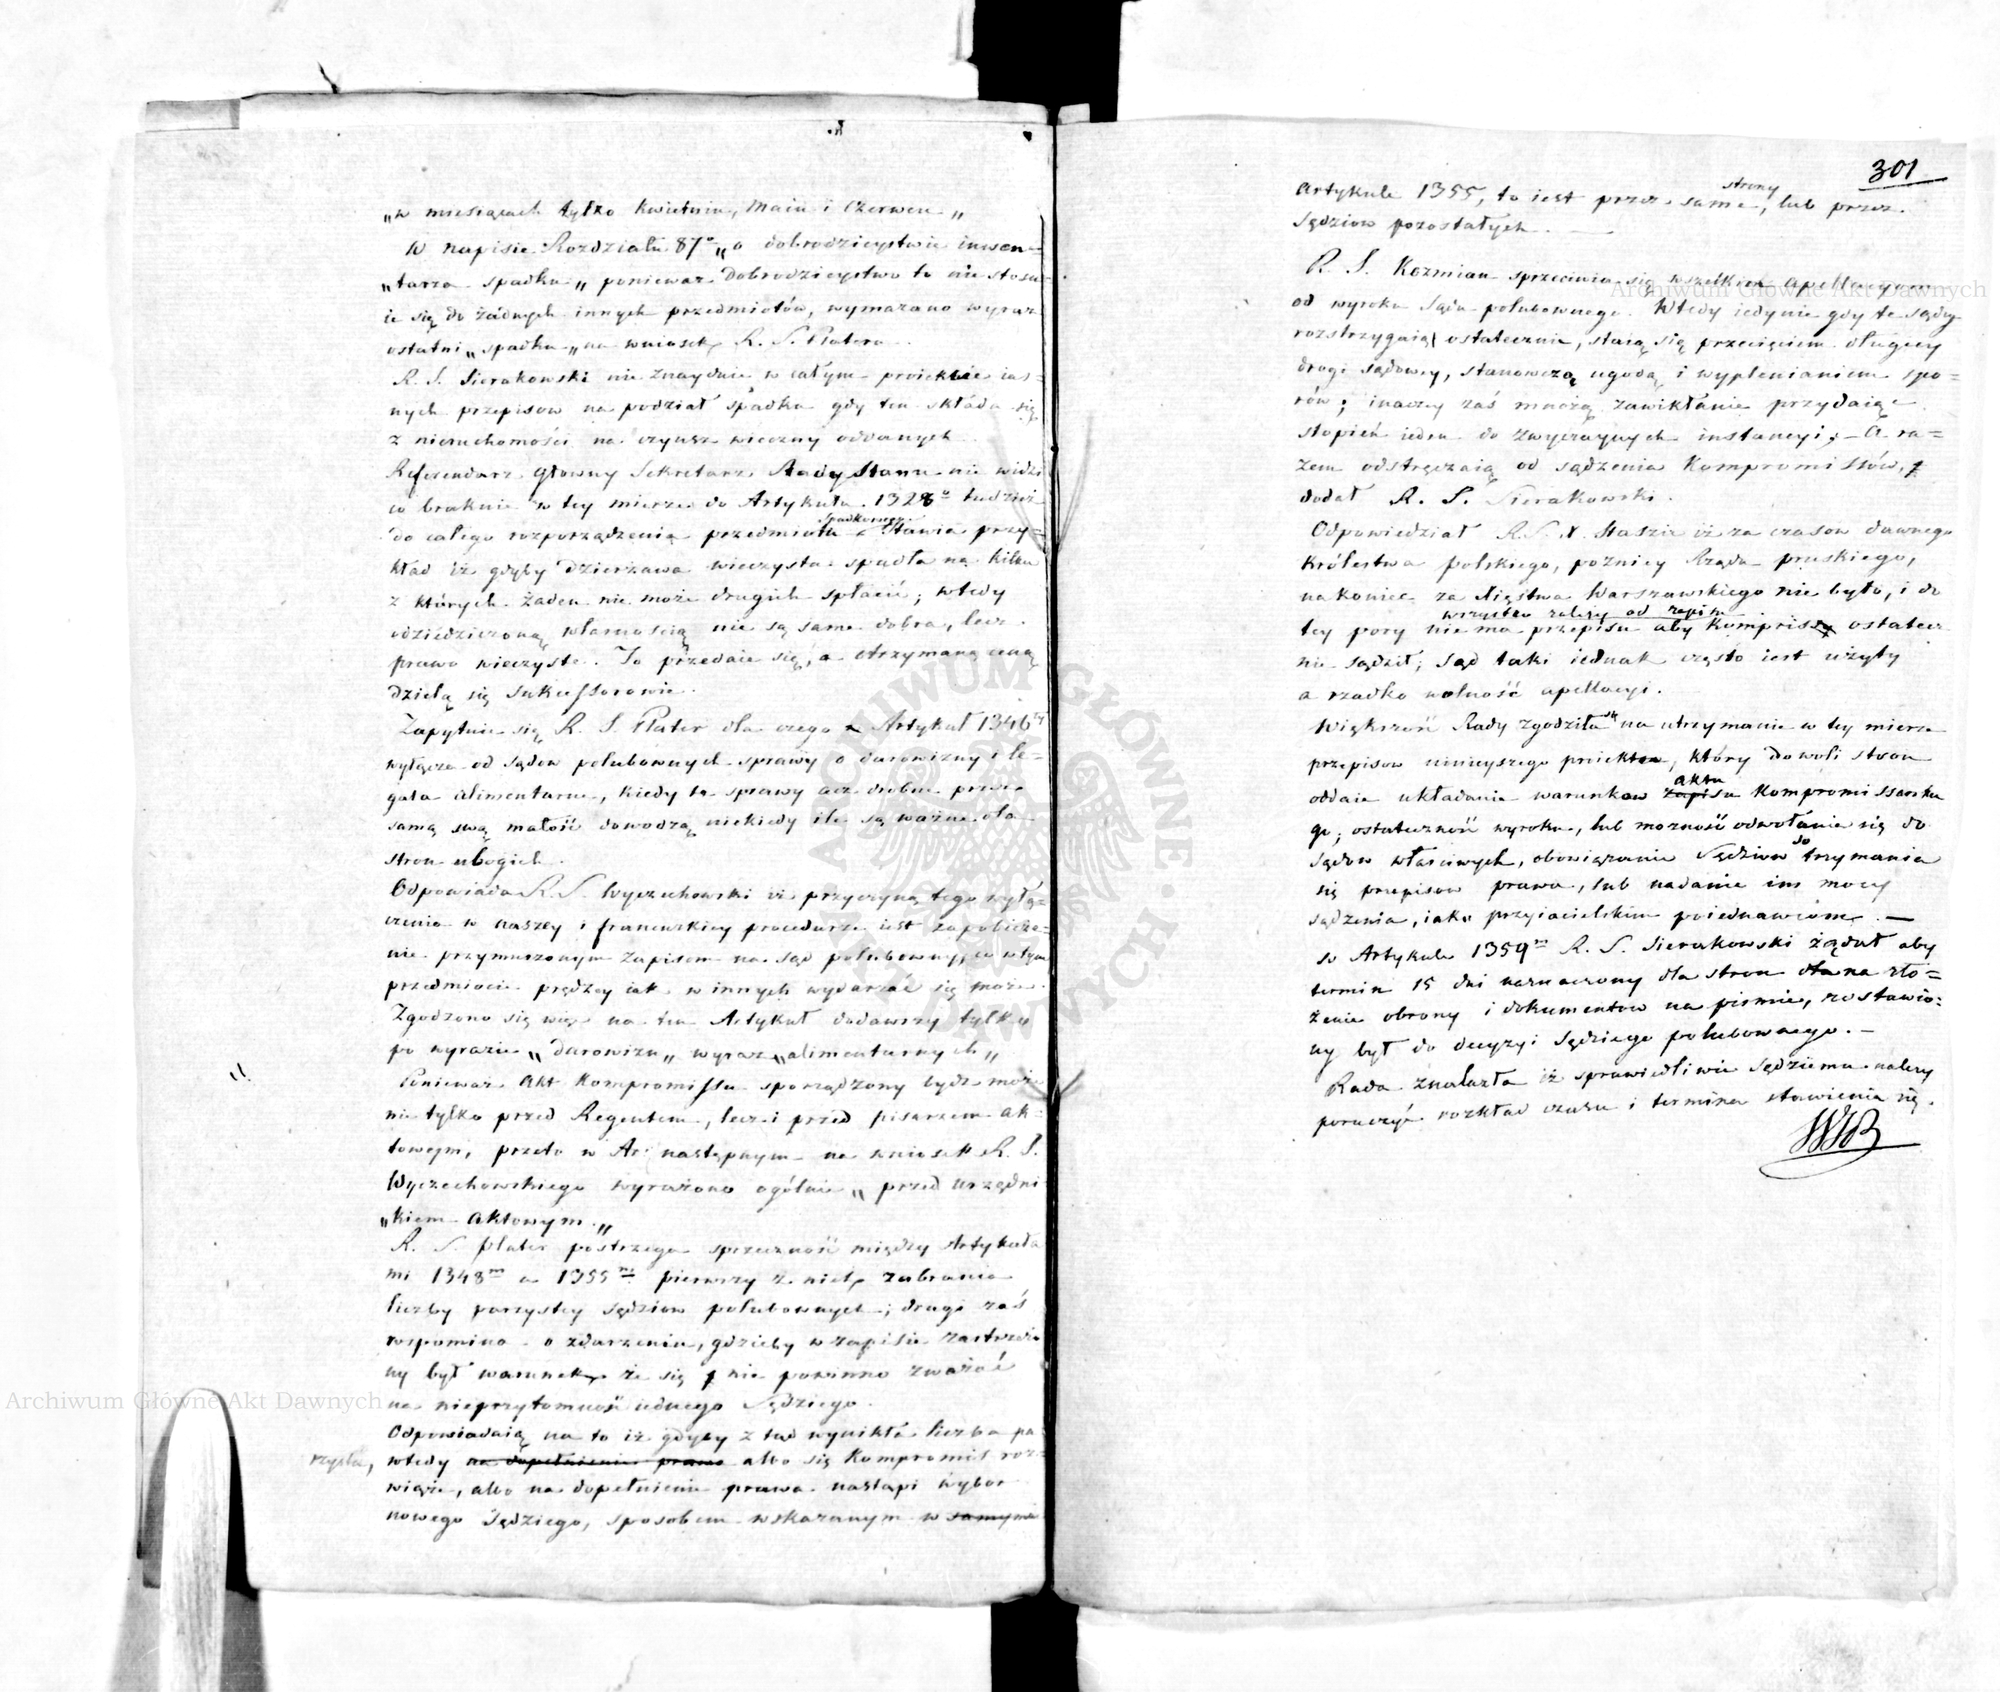 „w miesiącach tylko Kwietniu, Maiu i Czerwcu „
W napisie Rozdziału 87º „o dobrodzieystwie inwen=
„tarza spadku„ ponieważ Dobrodzieystwo to nie stosu=
ie się do żadnych innych przedmiotów, wymazano wyraz
ostatni „spadku„ na wniosek R. S. Platera.
R. S. Sierakowski nie znayduie w całym proiekcie ias=
nych przepisow na podział spadku gdy ten składa się
z nieruchomości na czynsz wieczny oddanych
Referendarz Głowny Sekretarz Rady Stanu nie widzi
co braknie w tey mierze do Artykułu 1328º tudzież
do całego rozporządzenia przedmiotu spadkowego. Stawia przy=
kład iż gdyby dzierżawa wieczysta spadła na kilku
z których żaden nie może drugich spłacić; wtedy
odziedziczoną własnością nie są same dobra, lecz
prawo wieczyste. To przedaie się, a otrzymaną ceną
dzielą się sukcessorowie.
Zapytuie się R. S. Plater dla czego Artykuł 1346ty
wyłącza od sądow polubownych sprawy o darowizny i le=
gata alimentarne, kiedy te sprawy acz drobne przez
samą swą małość dowodzą niekiedy ile są ważne dla
stron ubogich.
Odpowiada R. S. Wyczechowski iż przyczyną tego wyłą=
czenia w naszey i francuskiey procedurze iest zapobieże=
nie przymuszonym zapisom na sąd polubowny, co w tym
przedmiocie prędzey iak w innych wydarzać się może.
Zgodzono się więc na ten Artykuł dodawszy tylko
po wyrazie „darowizn„ wyraz „alimentarnych„
Ponieważ Akt Kompromissu sporządzony bydź może
nie tylko przed Regentem, lecz i przed pisarzem ak=
towym, przeto w Ar: następnym na wniosek R. S.
Wyczechowskiego wyrażono ogólnie „przed urzędni
„kiem aktowym.„
R. S. Plater postrzega sprzeczność między Artykuła
mi 1348m a 1355m pierwszy z nich zabrania
liczby parzystey sędziow polubownych; drugi zaś
wspomina o zdarzeniu, gdzieby w zapisie zastrzeżo
ny był warunek że się nie powinno zważać
na nieprzytomność iednego Sędziego.
Odpowiadaią na to iż gdyby z tąd wynikła liczba pa
rzysta, wtedy na dopełnienie prawa albo się Kompromis roz=
wiąże, albo na dopełnienie prawa nastąpi wybor
nowego Sędziego, sposobem wskazanym w samym
301
Artykule 1355, to iest przez same strony, lub przez
Sędziow pozostałych.
R. S. Kozmian sprzeciwia się wszelkim apellacyom
od wyroku sądu polubownego. Wtedy iedynie gdy te sądy
rozstrzygaią ostatecznie, staią się przecięciem długiey
drogi sądowey, stanowczą ugodą i wyplenianiem spo=
rów; inaczey zaś mnożą zawikłanie przydaiąc
stopień ieden do zwyczaynych instancyi; – A ra=
zem odstręczaią od sądzenia Kompromissów,
dodał R. S. Sierakowski.
Odpowiedział R. S. X. Staszic iż za czasow dawnego
Królestwa polskiego, pozniey Rządu pruskiego,
nakoniec za Xięstwa Warszawskiego nie było, i do
wszystko zależy od zapisu
tey pory nie ma przepisu aby Kompris ostatecz
nie sądził; sąd taki iednak często iest użyty
a rzadko wolność apellacyi.
Większość Rady zgodziła się na utrzymanie w tey mierze
przepisow ninieyszego proiektu, który do woli stron
oddaie układanie warunkow zapisu aktu Kompromissarsku
go; ostateczność wyroku, lub możność odwołania się do
sądow właściwych, obowiązanie Sędziow do trzymania
się przepisow prawa, lub nadanie im mocy
sądzenia, iako przyiacielskim poiednawcom. —
w Artykule 1359m R. S. Sierakowski żądał aby
termin 15 dni naznaczony dla stron dla na zło=
żenie obrony i dokumentow na pismie, zostawio:
ny był do decyzyi Sędziego polubownego. —
Rada znalazła iż sprawiedliwie Sędziemu należy
poruczyć rozkład czasu i termina stawienia się.
Archiwum Główne Akt Dawnych
Archiwum Główne Akt Dawnych
ARCHIWUM GŁÓWNE AKT DAWNYCH